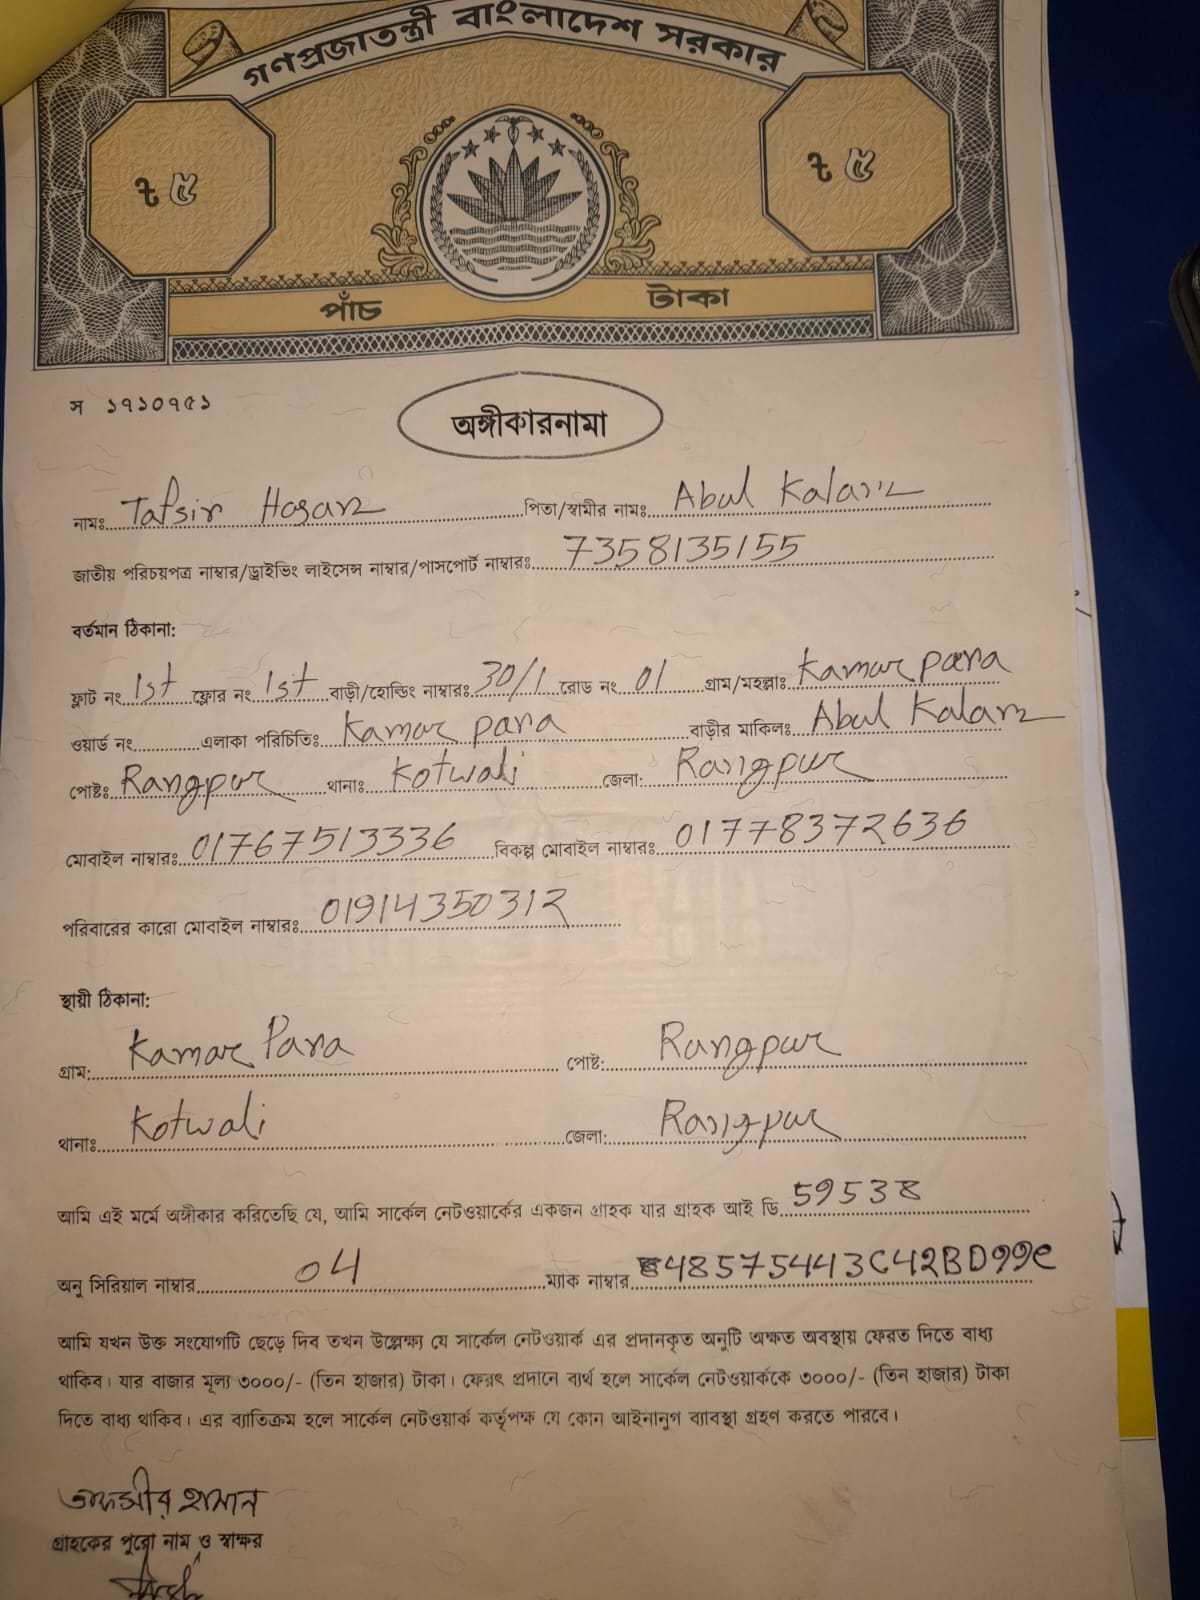 গণপ্রজাতন্ত্রী বাংলাদেশ সরকার
৳ ৫ ৳ ৫
পাঁচ টাকা
স ১৭১০৭৫১
অঙ্গীকারনামা
নামঃ Tafsir Hasan পিতা/স্বামীর নামঃ Abul Kalam
জাতীয় পরিচয়পত্র নাম্বার/ড্রাইভিং লাইসেন্স নাম্বার/পাসপোর্ট নাম্বারঃ 7358135155
বর্তমান ঠিকানা:
ফ্লাট নং 1st ফ্লোর নং 1st বাড়ী/হোল্ডিং নাম্বারঃ 30/1 রোড নং 01 গ্রাম/মহল্লাঃ Kamar para
ওয়ার্ড নং এলাকা পরিচিতিঃ Kamar para বাড়ীর মাকিলঃ Abul Kalam
পোষ্টঃ Rangpur থানাঃ Kotwali জেলা: Rangpur
মোবাইল নাম্বারঃ 01767513336 বিকল্প মোবাইল নাম্বারঃ 01778372636
পরিবারের কারো মোবাইল নাম্বারঃ 01914350312
স্থায়ী ঠিকানা:
গ্রাম: Kamar Para পোষ্ট: Rangpur
থানাঃ Kotwali জেলা: Rangpur
আমি এই মর্মে অঙ্গীকার করিতেছি যে, আমি সার্কেল নেটওয়ার্কের একজন গ্রাহক যার গ্রাহক আই ডি 59538
অনু সিরিয়াল নাম্বার 04 ম্যাক নাম্বার 48575443C42BD99C
আমি যখন উক্ত সংযোগটি ছেড়ে দিব তখন উল্লেক্ষ্য যে সার্কেল নেটওয়ার্ক এর প্রদানকৃত অনুটি অক্ষত অবস্থায় ফেরত দিতে বাধ্য
থাকিব। যার বাজার মূল্য ৩০০০/- (তিন হাজার) টাকা। ফেরৎ প্রদানে ব্যর্থ হলে সার্কেল নেটওয়ার্ককে ৩০০০/- (তিন হাজার) টাকা
দিতে বাধ্য থাকিব। এর ব্যতিক্রম হলে সার্কেল নেটওয়ার্ক কর্তৃপক্ষ যে কোন আইনানুগ ব্যাবস্থা গ্রহণ করতে পারবে।
তাফসীর হাসান
গ্রাহকের পুরো নাম ও স্বাক্ষর